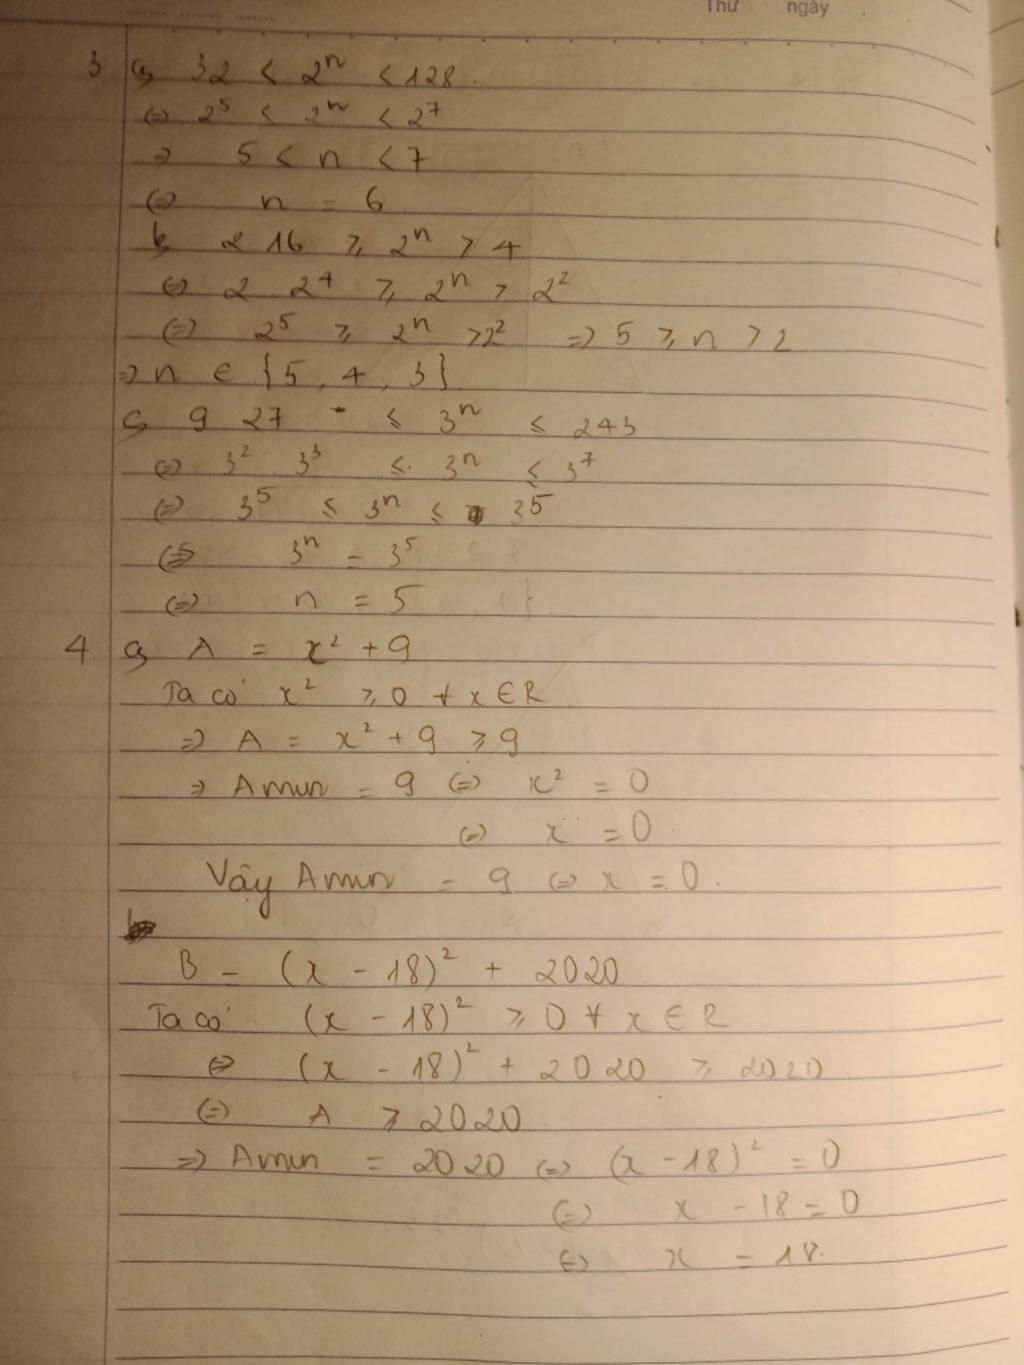 Thứ ngày
3 a, 32 < 2ⁿ < 128.
⇔ 2⁵ < 2ⁿ < 2⁷
⇒ 5 < n < 7
⇔ n = 6
b, 2 16 ≥ 2ⁿ > 4
⇔ 2 2⁴ ≥ 2ⁿ > 2²
⇔ 2⁵ ≥ 2ⁿ > 2² ⇒ 5 ≥ n > 2
⇒ n ∈ {5, 4, 3}
c, 9 27 ≤ 3ⁿ ≤ 243
⇔ 3² 3³ ≤ 3ⁿ ≤ 3⁷
⇔ 3⁵ ≤ 3ⁿ ≤ 3⁵
⇔ 3ⁿ = 3⁵
⇔ n = 5
4 a, A = x² + 9
Ta có x² ≥ 0 ∀ x ∈ R
⇒ A = x² + 9 ≥ 9
⇒ Amin = 9 ⇔ x² = 0
⇔ x = 0
Vậy Amin = 9 ⇔ x = 0.
B = (x - 18)² + 2020
Ta có (x - 18)² ≥ 0 ∀ x ∈ R
⇔ (x - 18)² + 2020 ≥ 2020
⇔ A ≥ 2020
⇒ Amin = 2020 ⇔ (x - 18)² = 0
⇔ x - 18 = 0
⇔ x = 18.